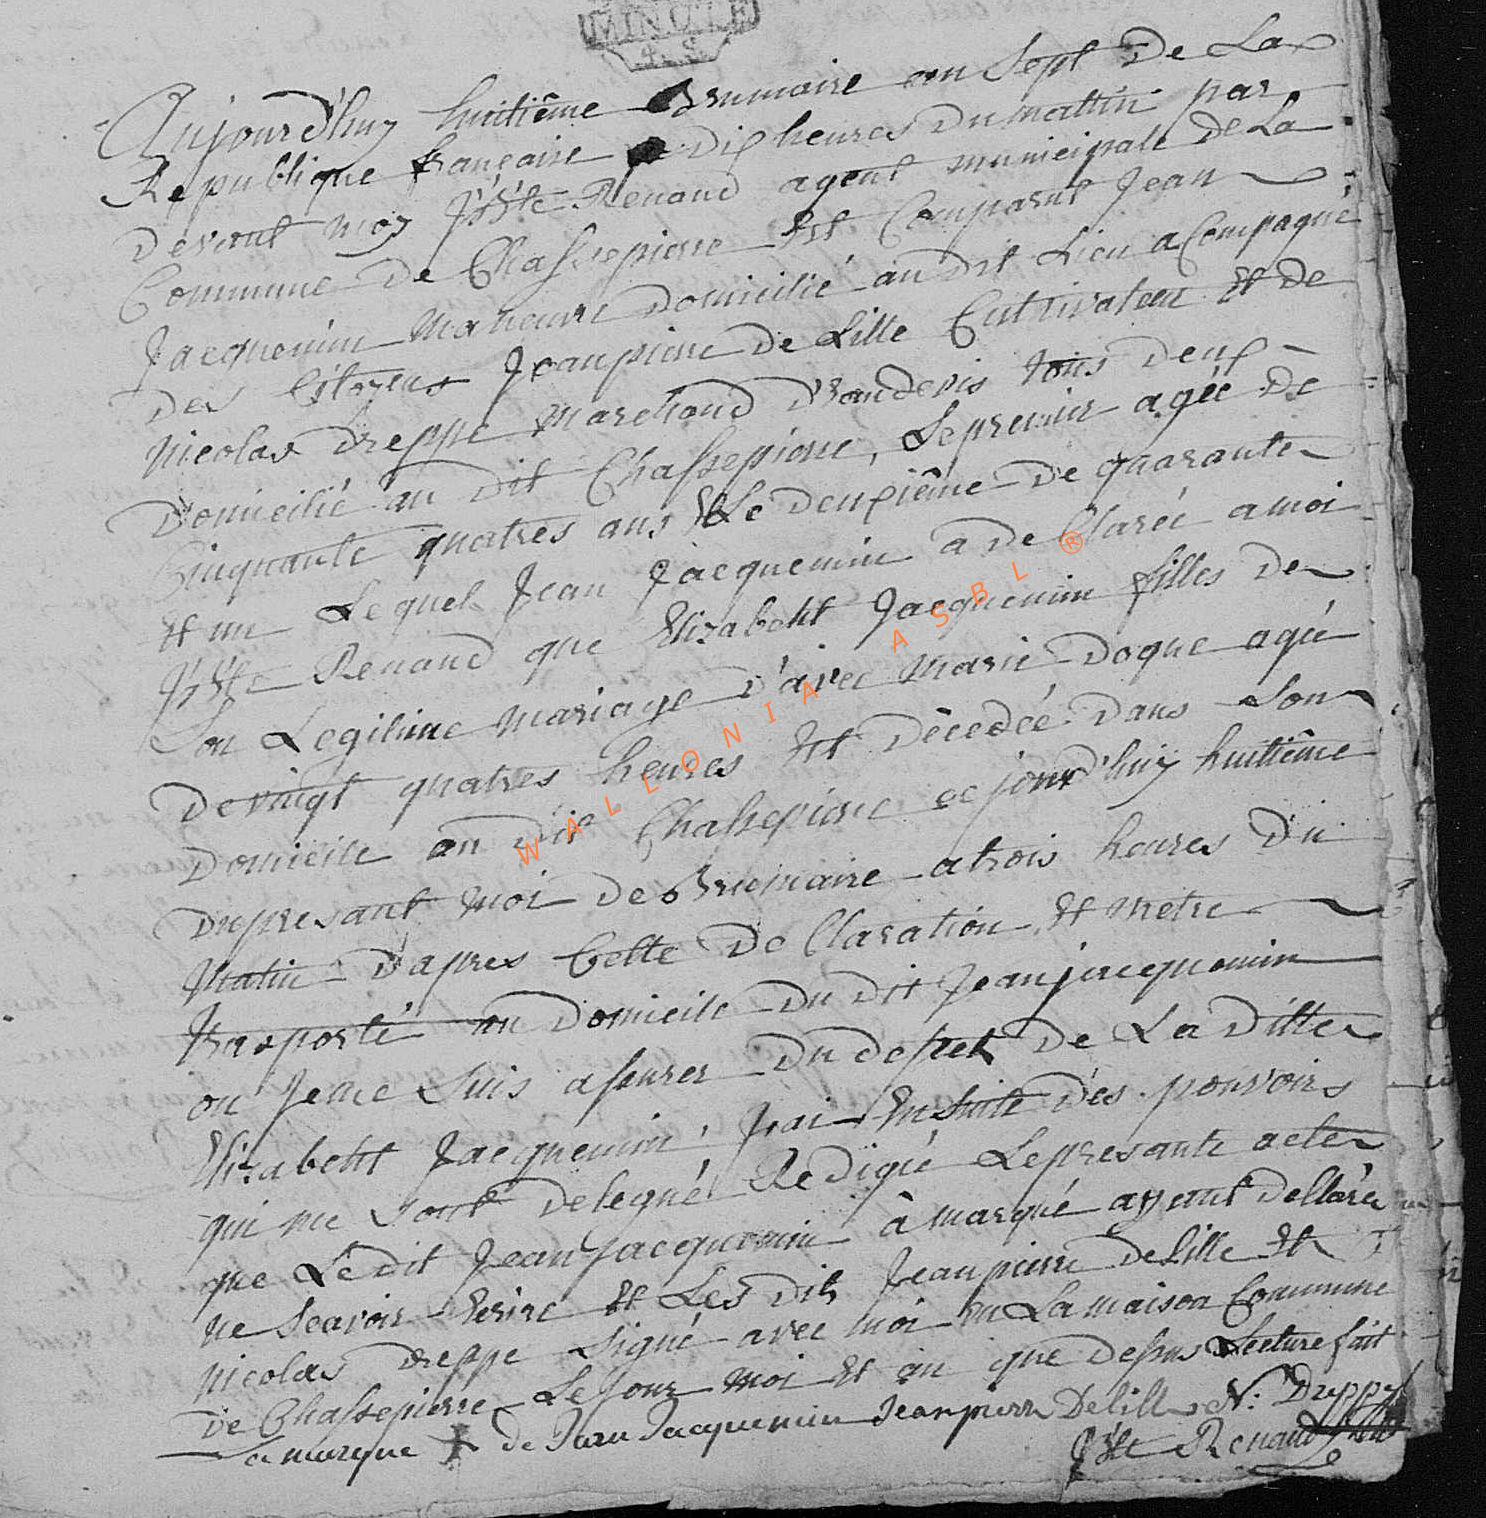 MINUTE
Aujourd'huy huitiême Brumaire an Sept De La
Republique française a Dix heures Du mattin par
Devant moy Jh Bte Renaud agent municipale De La
Commune De Chassepierre Est Comparut Jean
Jacquemin manouvre Domicilié au Dit Lieu acompagné
Des Citoyens Jeanpierre De Lille Cultivateur Et De
Nicolas Dreppe marchand D'eaudevis tous Deux
Domicilié au Dit Chassepierre, Le premier agée De
Cinquante quatres ans & Le Deuxiême De quarante
Et un Lequel Jean Jacquemin a De Clarée a moi
Jh Bte Renaud que Elizabeht Jacquemin filles De
Son Legitime mariage D'avec Marie Doque agée
De vingt quatres heures Est Decedée Dans Son
Domicile au Dit Chassepierre ce jourd'huy huitiême
Du presant moi De Brumaire a trois heures Du
Matin D'apres Cette De Claration, Et metre
Trasporté au Domicile Du Dit Jean jacquemin
ou Je me Suis assurer Du deset De La Ditte
Elizabeht Jacquemin, J'ai En Suite Des pouvoirs
qui me Sont Delegué Redigée Le presante acte
que Le dit Jean Jacquemin à marqué ayant Dellarée
ne Scavoir Ecrire Et Les Dits Jeanpierre De Lille Et
Nicolas Dreppe Signé avec moi En La maison Commune
De Chassepierre Le Jour moi Et an que Dessus Lecture fait
La marque + de Jean Jacquemin Jeanpierre Delille N: Dreppe
Jh Bte Renaud
WALLONIA ASBL ®